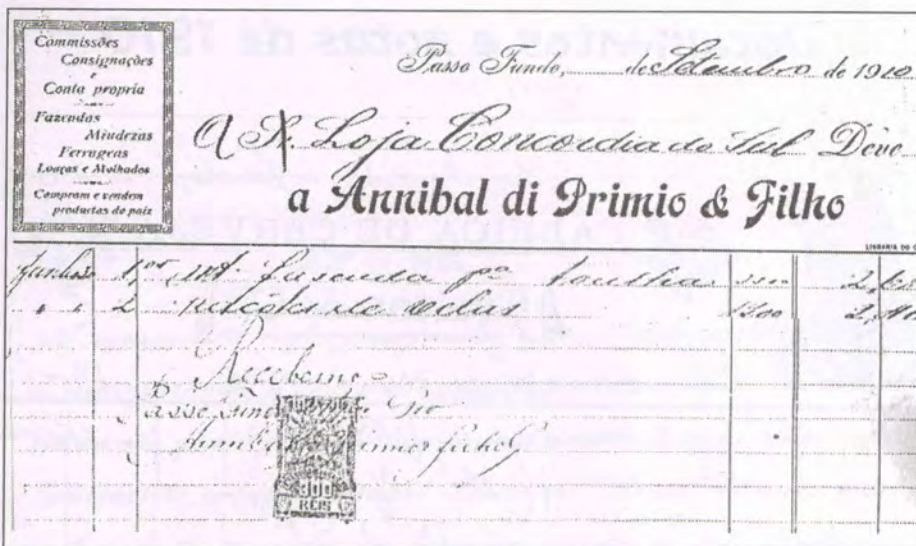 Commissões
Consignações
e
Conta propria
Fazendas
Miudezas
Ferragens
Louças e Molhados
Compram e vendem
productos do paiz
Passo Fundo, de Setembro de 1910
A Loja Concordia do Sul Deve
a Annibal di Primio & Filho
LIVRARIA DO
Junho 1, fasenda pa toalha
" " 2 de 1200
Recebemos
Passo Fundo
Annibal di Primio & Filho
300
REIS